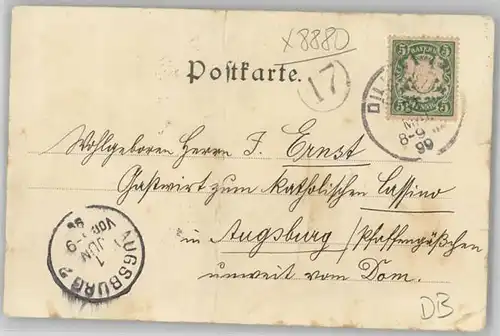 x 8880
Postkarte.
17
5 BAYERN 5
5 PFENNIG 5
DILL
MAI
8-9
99
Wohlgeboren Herrn J. Ernst
Gastwirt zum katholischen Cassino
in Augsburg / Pfaffengäßchen
unweit vom Dom.
AUGSBURG 2
1
JUN
Vor. 8-9
99
DB